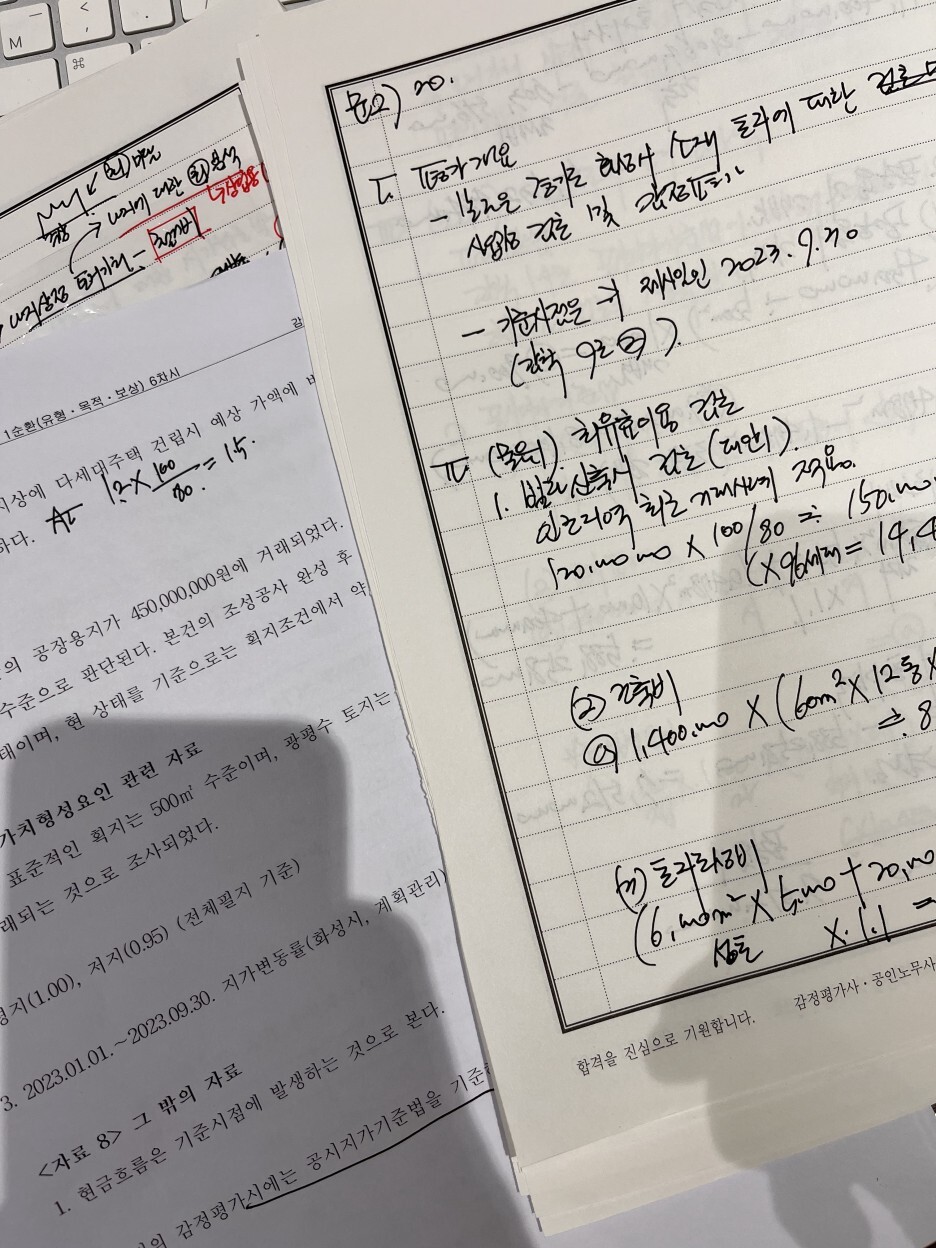 M
⌘
문2) 20.
I. 평가개요
- 본건은 경기도 화성시 소재 토지에 대한
사업성 검토 및 감정평가
- 기준시점은 귀 제시일인 2023. 9. 30
II. (물음1) 최유효이용 검토
1. 빌라 신축시 검토 (대안1).
인근지역 최근 거래사례 적용.
120,000,000 × 100/80 ≒ 150,000
(×96세대 = 14,4
(2) 건축비
@ 1,400,000 × (60m² × 12동 ×
≒ 8
(3)
(6,000m² × 5,000 + 20,000
× 1.1 =
합격을 진심으로 기원합니다.
감정평가사 · 공인노무사
감
1순환(유형 · 목적 · 보상) 6차시
지상에 다세대주택 건립시 예상 가액에
하다.
12 × 100/80 = 15.
의 공장용지가 450,000,000원에 거래되었다.
수준으로 판단된다. 본건의 조성공사 완성 후
태이며, 현 상태를 기준으로는 획지조건에서 약
가치형성요인 관련 자료
표준적인 획지는 500㎡ 수준이며, 광평수 토지는
래되는 것으로 조사되었다.
평지(1.00), 저지(0.95) (전체필지 기준)
3. 2023.01.01.~2023.09.30. 지가변동률(화성시, 계획관리)
<자료 8> 그 밖의 자료
1. 현금흐름은 기준시점에 발생하는 것으로 본다.
의 감정평가시에는 공시지가기준법을 기준